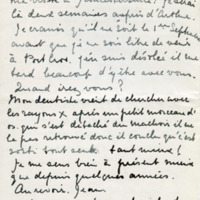 là deux semaines auprès d'Arthur.
Je crains qu'il ne soit le 1er Septembre
avant que je ne sois libre de venir
à Port Cros. J'en suis désolée il me
tard beaucoup d'être avec vous.
Quand irez vous?
Mon dentiste vient de chercher avec
les rayons X après un petit morceau d'
os qui s'est détaché du machoir et ne
le pas retrouvé donc il conclu qu'il est
sorti tout seul. tant mieux!
Je me sens bien à présent mieux
que depuis quelques années.
Au revoir. Jean